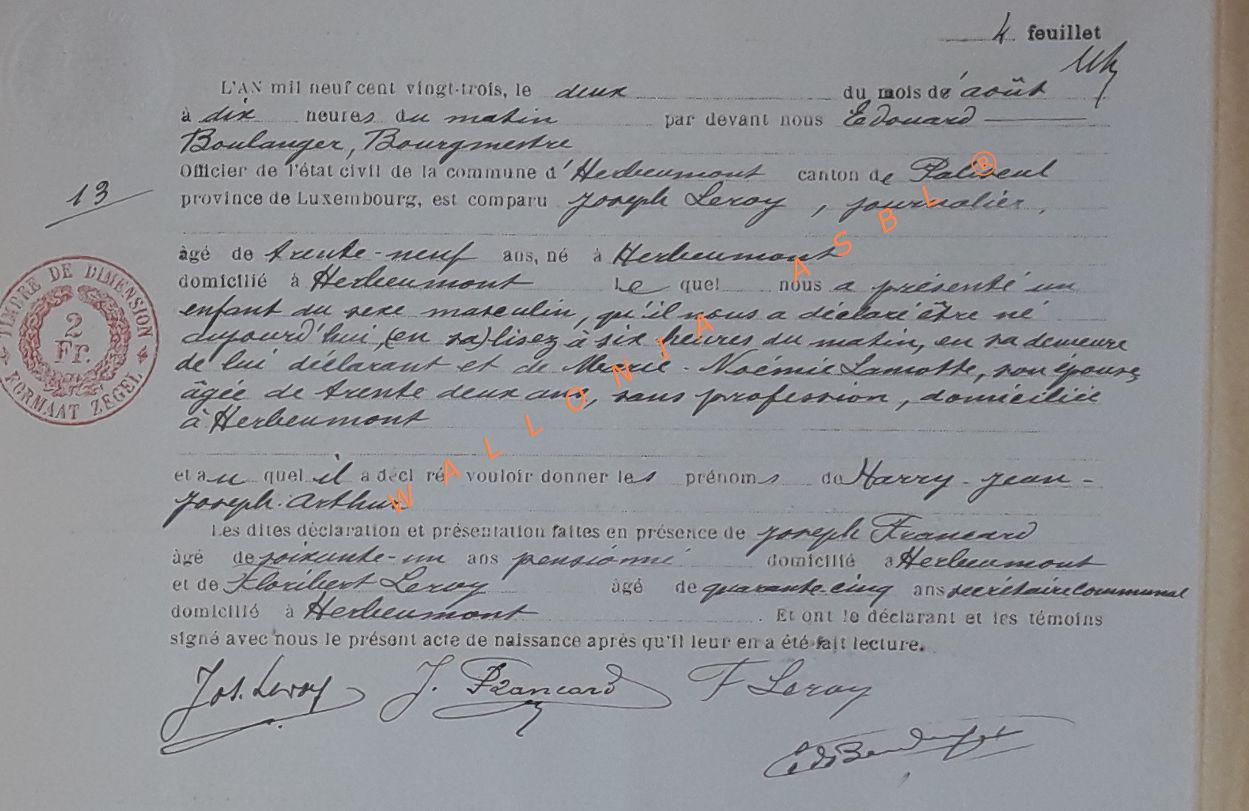 4 feuillet
L'AN mil neuf cent vingt-trois, le deux du mois de août
à dix heures du matin par devant nous Edouard
Boulanger, Bourgmestre
Officier de l'état civil de la commune d'Herbeumont canton de Paliseul
13
province de Luxembourg, est comparu Joseph Leroy, journalier,
âgé de trente-neuf ans, né à Herbeumont
domicilié à Herbeumont Le quel nous a présenté un
enfant du sexe masculin, qu'il nous a déclaré être né
aujourd'hui, (en sa) lisez à six heures du matin, en sa demeure
de lui déclarant et de Marie-Noémie Lamotte, son épouse,
âgée de trente deux ans, sans profession, domiciliée
à Herbeumont
et au quel il a décl ré vouloir donner les prénoms de Harry-Jean-
Joseph-Arthur
Les dites déclaration et présentation faites en présence de Joseph Francard
âgé de soixante-un ans pensionné domicilié à Herbeumont
et de Floribert Leroy âgé de quarante-cinq ans secrétaire communal
domicilié à Herbeumont. Et ont le déclarant et les témoins
signé avec nous le présent acte de naissance après qu'il leur en a été fait lecture.
Jos. Leroy J. Francard F Leroy
TIMBRE DE DIMENSION
2
Fr.
FORMAAT ZEGEL
WALLONIA ASBL ®